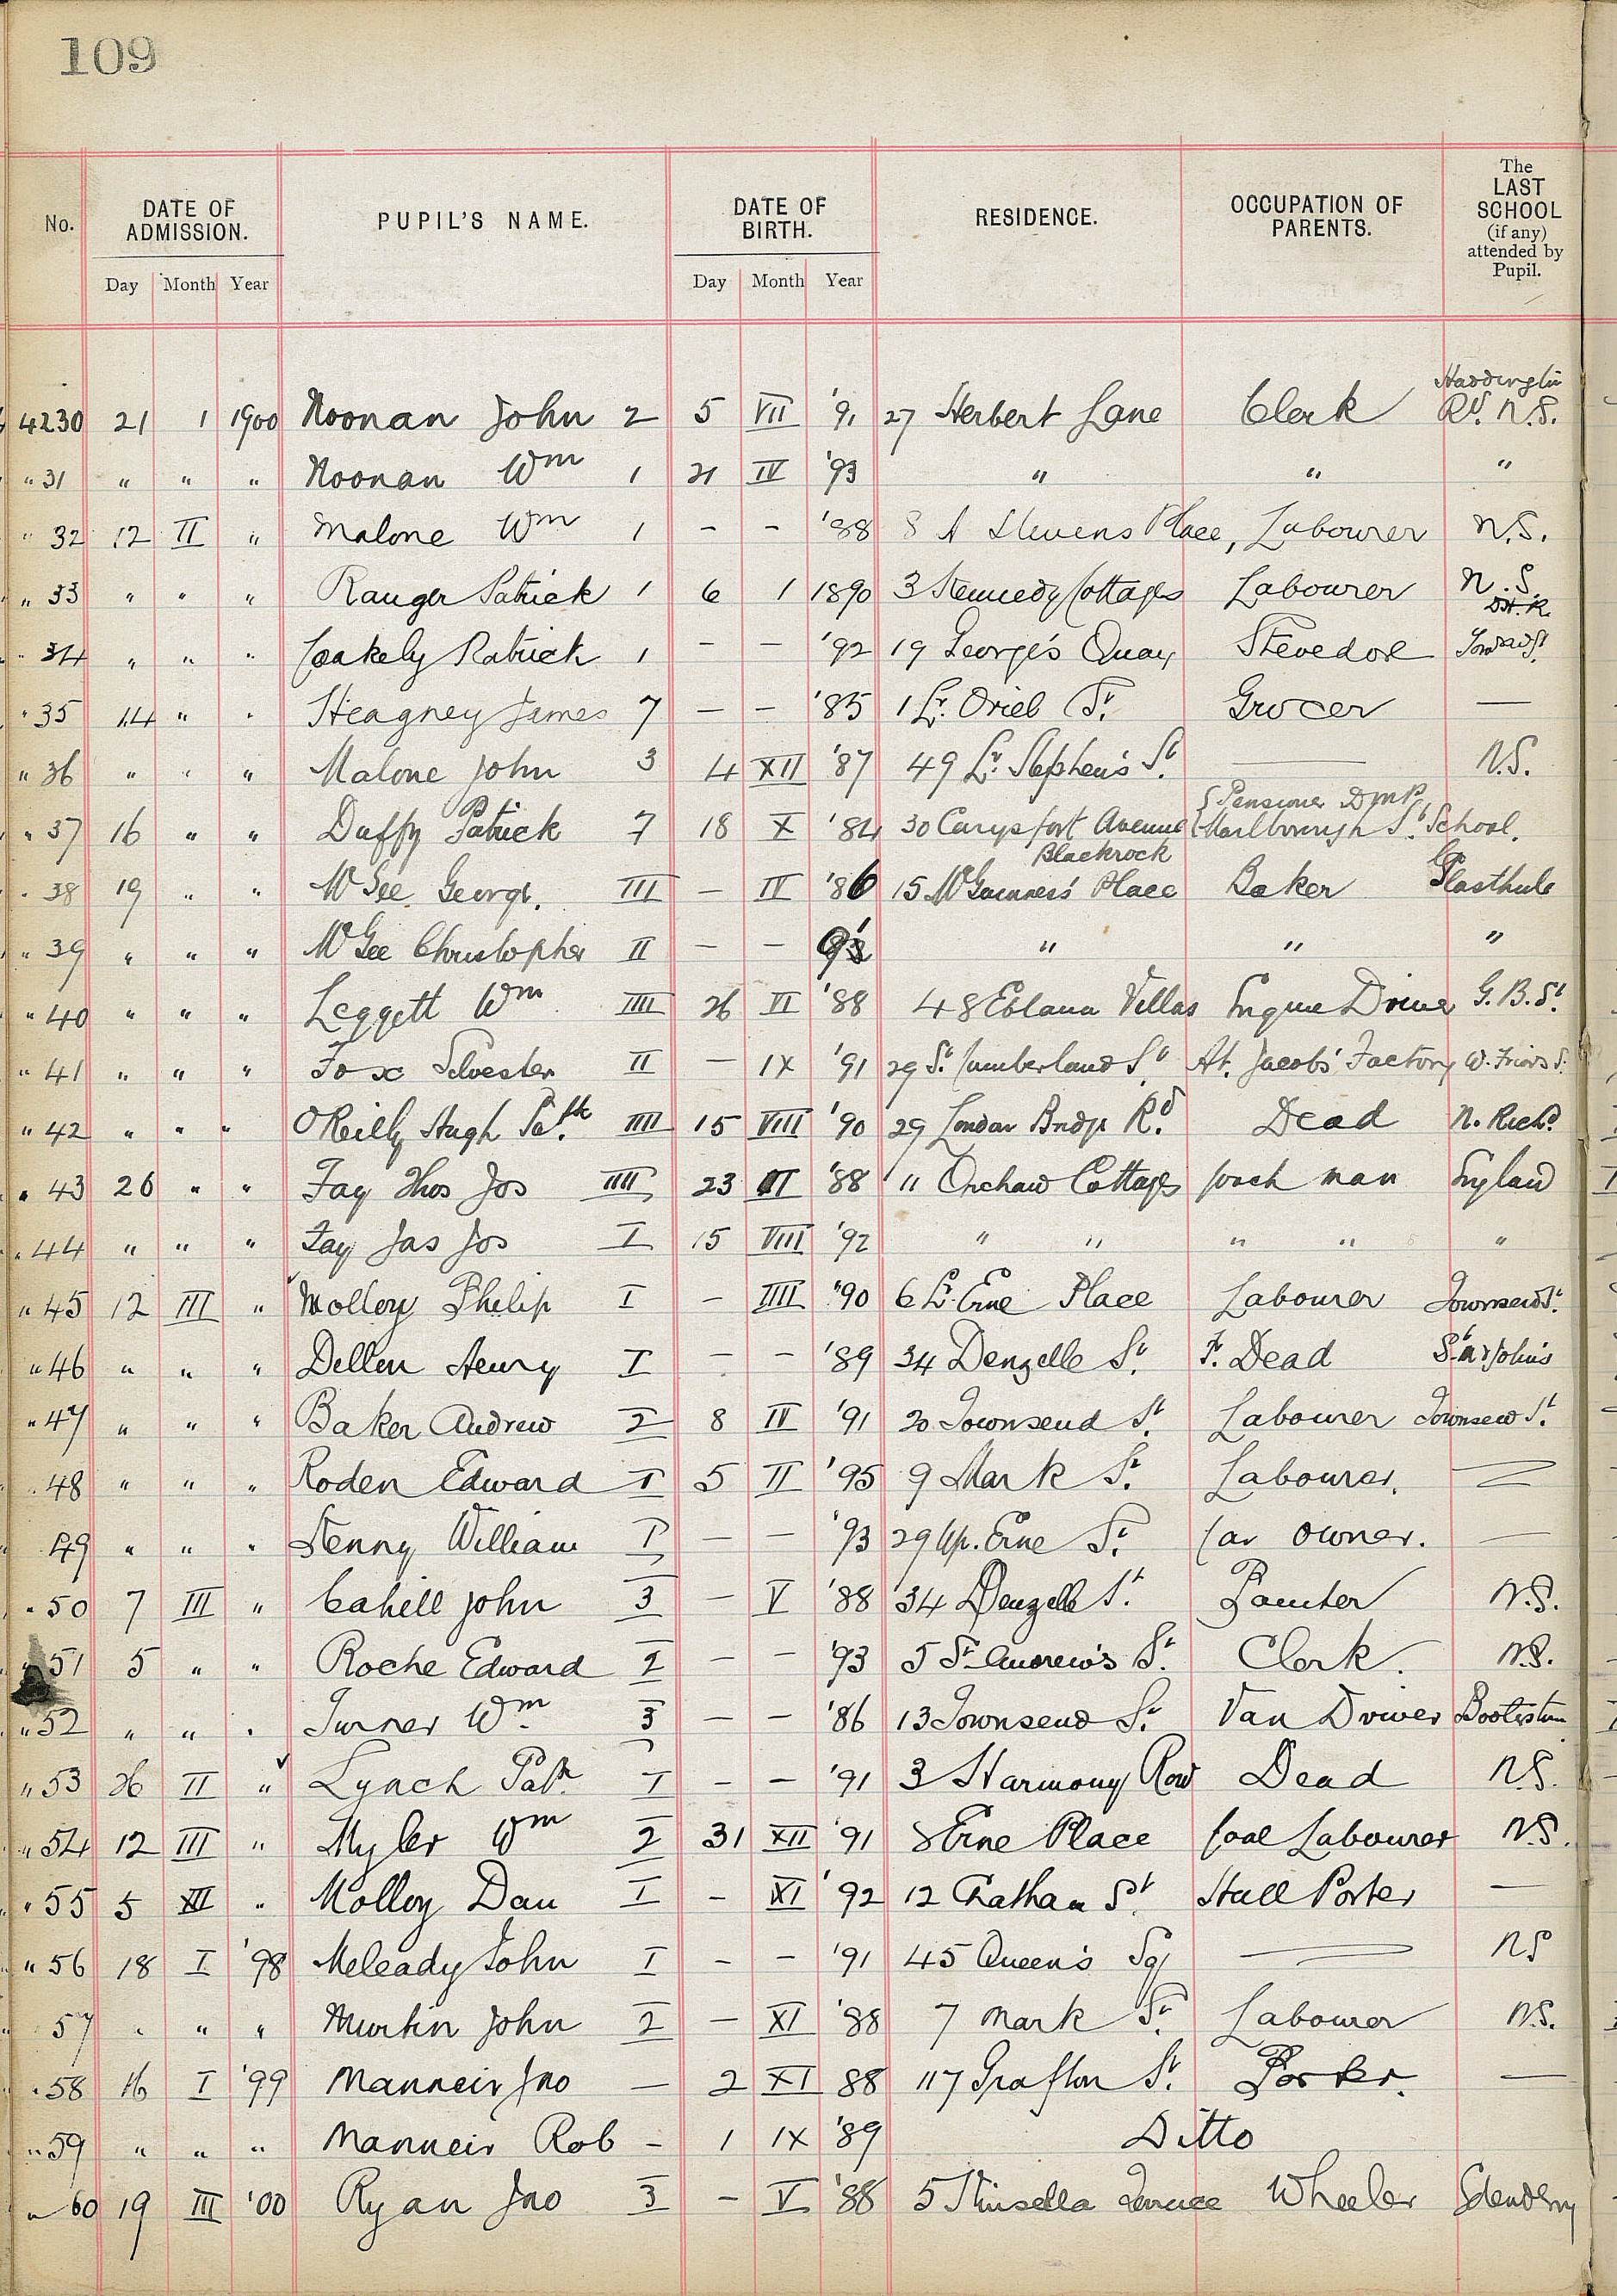 109
No. DATE OF ADMISSION. PUPIL'S NAME. DATE OF BIRTH. RESIDENCE. OCCUPATION OF PARENTS. The LAST SCHOOL (if any) attended by Pupil.
Day Month Year Day Month Year
4230 21 1 1900 Noonan John 2 5 VII '91 27 Herbert Lane Clerk Haddington Rd. N.S.
" 31 " " " Noonan Wm 1 21 IV '93 " " "
" 32 12 II " Malone Wm 1 - - '88 8 A Stevens Place, Labourer N.S.
" 33 " " " Ranger Patrick 1 6 1 1890 3 Kennedy Cottages Labourer N.S.
" 34 " " " Coakely Patrick 1 - - '92 19 George's Quay Stevedore
" 35 14 " " Heagney James 7 - - '85 1 Lr. Oriel St. Grocer —
" 36 " " " Malone John 3 4 XII '87 49 Lr. Stephen's St. — N.S.
" 37 16 " " Duffy Patrick 7 18 X '84 30 Carysfort Avenue Blackrock { Pensioner DMP Marlborough St. School.
" 38 19 " " McGee George. III - IV '86 15 McGuinness' Place Baker Glasthule
" 39 " " " McGee Christopher II - - " " "
" 40 " " " Leggett Wm IIII 26 VI '88 48 Eblana Villas Engine Driver G. B. St.
" 41 " " " Fox Silvester II - IX '91 29 St. Cumberland St. At. Jacobs' Factory W. Friars S.
" 42 " " " O'Reilly Hugh Patk. IIII 15 VIII '90 29 London Bridge Rd. Dead N. Richd.
" 43 26 " " Fay Thos Jos IIII 23 '88 11 Cottages Coach man England
" 44 " " " Fay Jas Jos I 15 VIII '92 " " " " "
" 45 12 III " Molloy Philip I - IIII '90 6 Lr. Erne Place Labourer Townsend St.
" 46 " " " Dellen Henry I - - '89 34 Denzelle St. F. Dead John's
" 47 " " " Baker Andrew 2 8 IV '91 20 Townsend St. Labourer Townsend St.
" 48 " " " Roden Edward I 5 II '95 9 Mark St. Labourer. —
49 " " " Kenny William I - - '93 29 Up. Erne St. Car owner. —
" 50 7 III " Cahill John 3 - V '88 34 Denzelle St. Painter N.S.
51 5 " " Roche Edward 2 - - '93 5 St. Andrew's St. Clerk. N.S.
" 52 " " " Turner Wm. 3 - - '86 13 Townsend St. Van Driver Booterstown
" 53 26 II " Lynch Patk. I - - '91 3 Harmony Row Dead N.S.
" 54 12 III " Myler Wm 2 31 XII '91 8 Erne Place Coal Labourer N.S.
" 55 5 XII " Molloy Dan I - XI '92 12 Chatham St. Hall Porter —
" 56 18 I '98 Meleady John I - - '91 45 Queen's Sq — NS
57 " " " Murtin John 2 - XI '88 7 Mark St. Labourer N.S.
" 58 16 I '99 Manneir Jno — 2 XI 88 117 Grafton St. Porter. —
" 59 " " " Manneir Rob - 1 IX '89 Ditto
" 60 19 III '00 Ryan Jno 3 - V '88 5 Kinsella Terrace Wheeler Edenderry